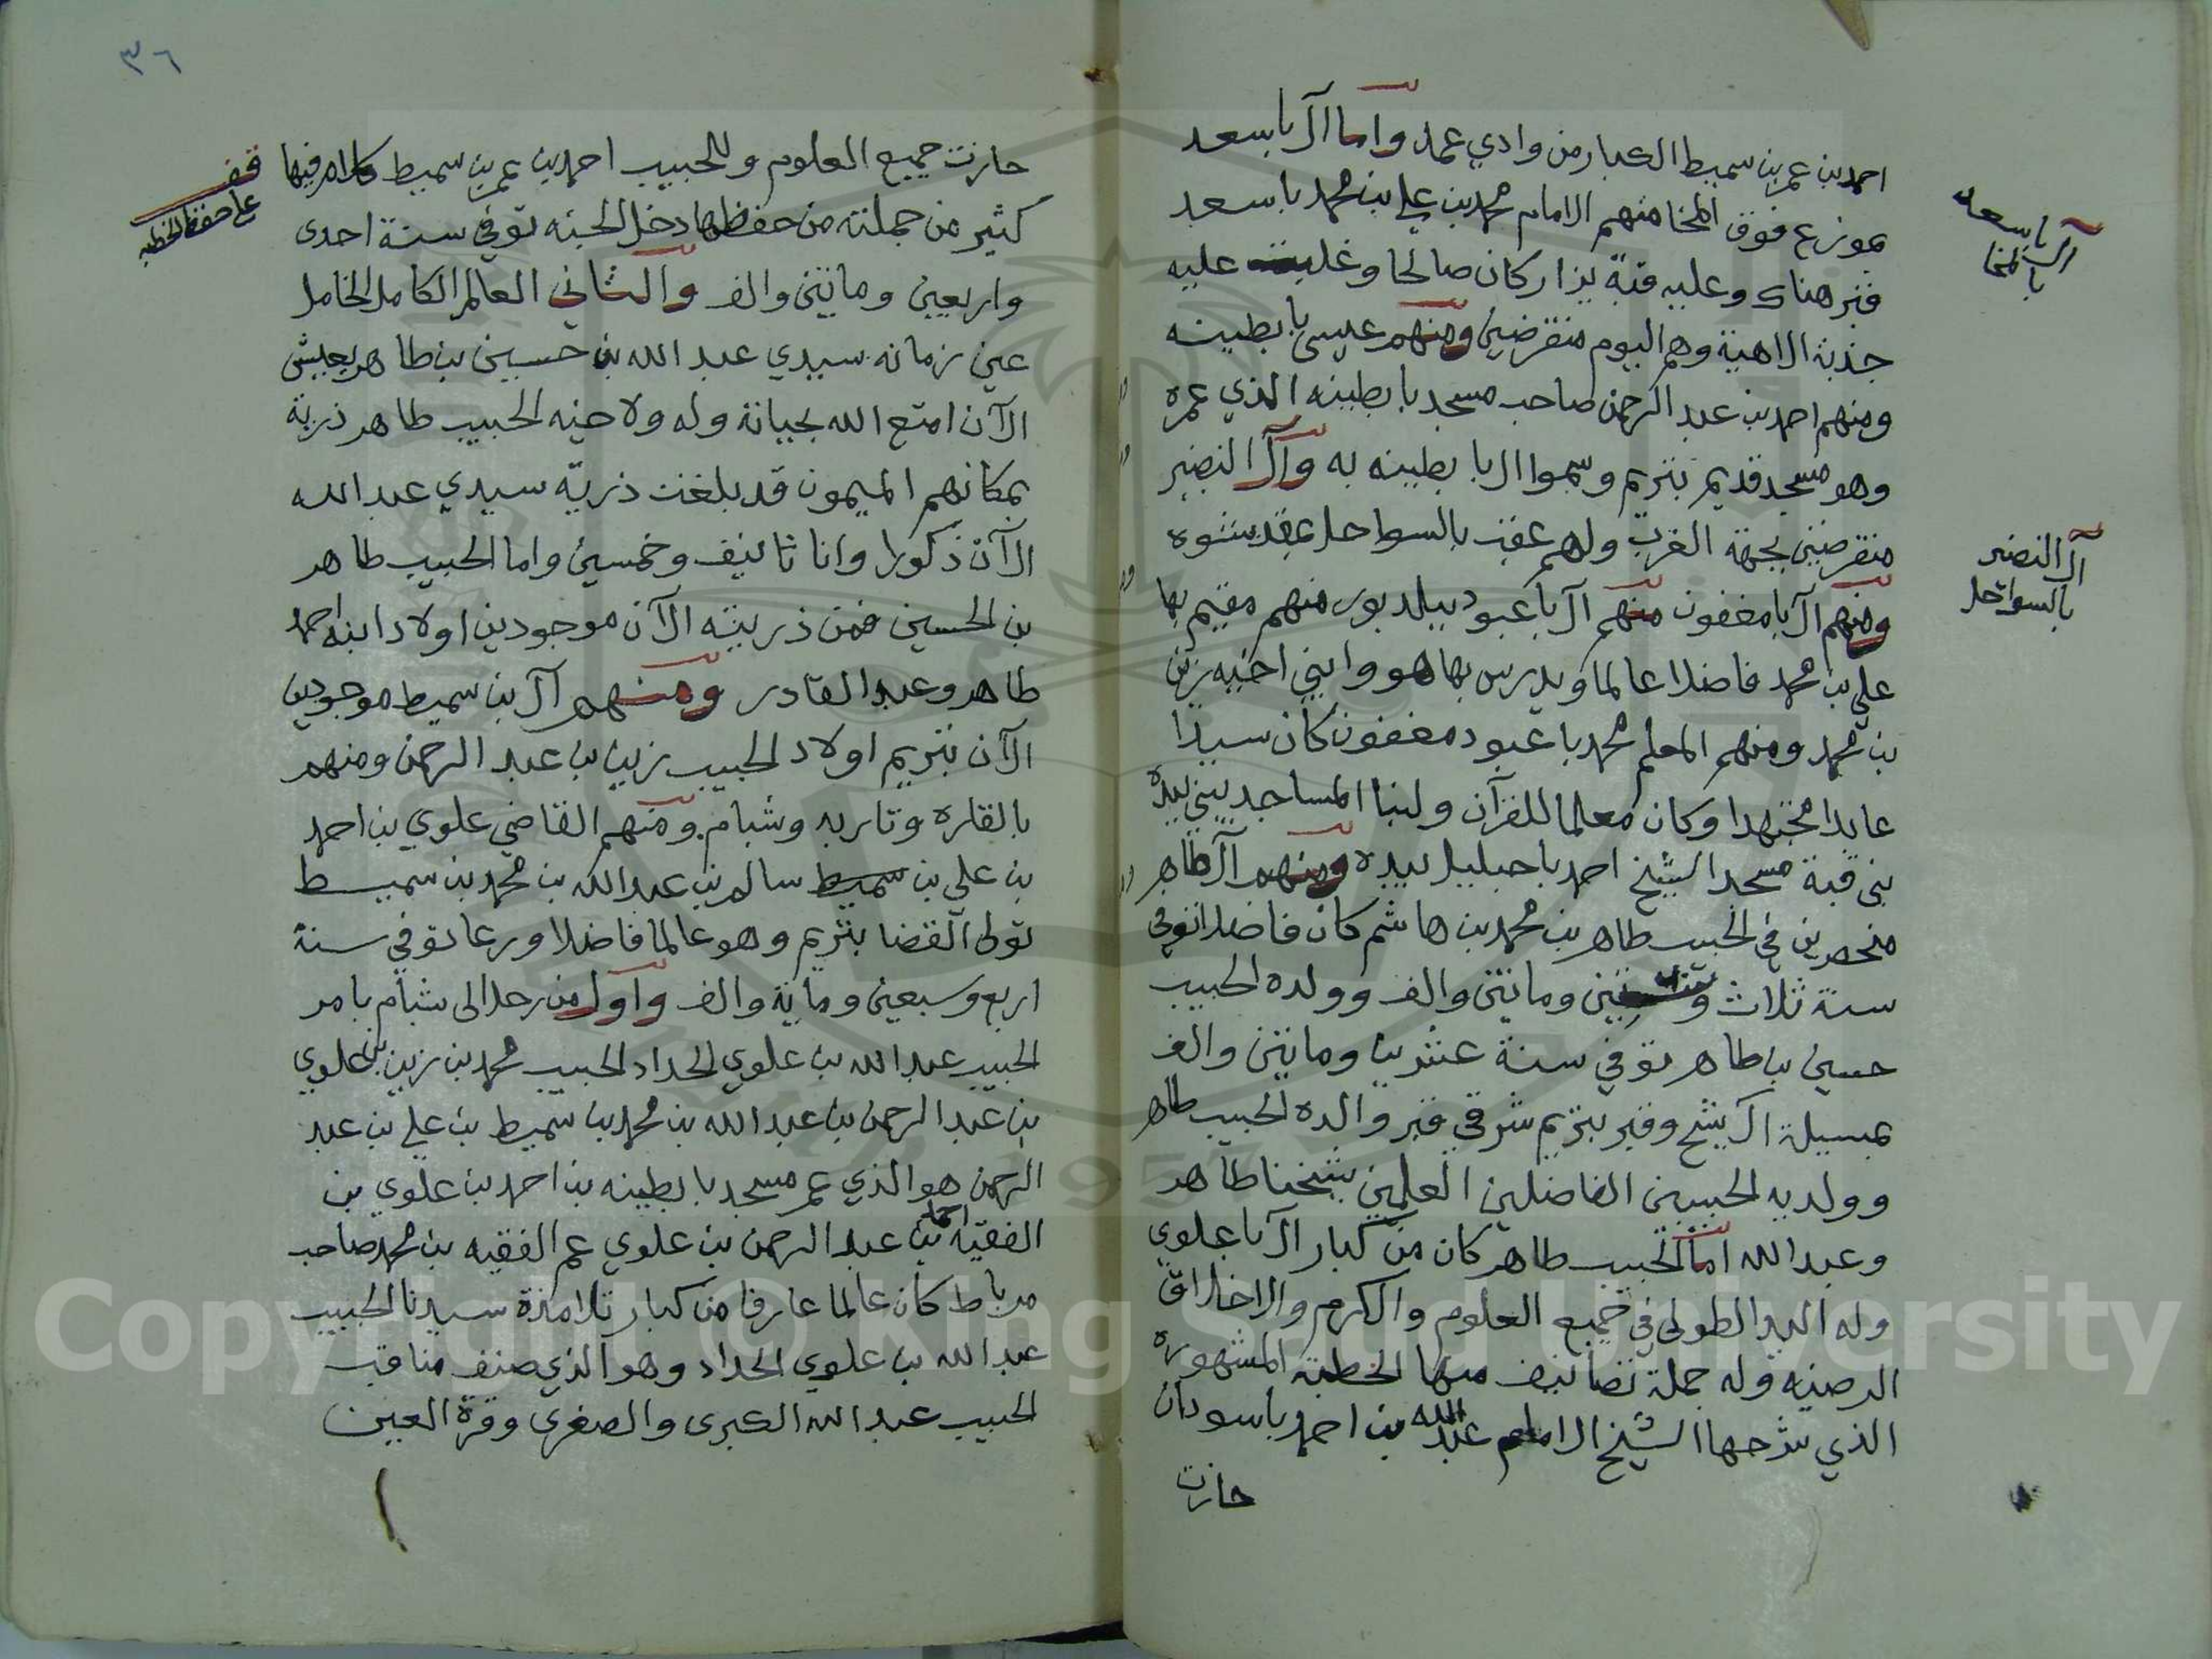 احمد بن عمر بن سميط الكبار من وادي عمد واما آل باسعد
بموزع فوق المخا منهم الامام محمد بن علي بن محمد باسعد
قبر هناك وعليه قبة يزار كان صالحا وغلبت عليه
جذبة الاهية وهم اليوم منقرضين ومنهم عيسى بابطينه
ومنهم احمد بن عبد الرحمن صاحب مسجد بابطينه الذي عمره
وهو مسجد قديم بتريم وسموا ال بابطينه به وآل النضير
منقرضين بجهة الغرب ولهم عقب بالسواحل
ومنهم آل بامغفون منهم آل باعبود ببلد بور منهم مقيم بها
علي بن محمد فاضلا عالما ويدرس بها هو وابني اخيه زين
بن محمد ومنهم المعلم محمد باعبود مغفون كان سيدا
عابدا مجتهدا وكان معلما للقرآن ولبنا المساجد يبني بيده
بنى قبة مسجد الشيخ احمد باحبليل بيده ومنهم آل طاهر
منحصرين في الحبيب طاهر بن محمد بن هاشم كان فاضلا توفي
سنة ثلاث وماتين والف وولده الحبيب
حسين بن طاهر توفي سنة عشرين وماتين والف
بمسيلة ال شيخ وقبر بتريم شرقي قبر والده الحبيب طاهر
وولديه الحبيبين الفاضلين العلمين شيخنا طاهر
وعبد الله اما الحبيب طاهر كان من كبار آل باعلوي
وله اليد الطولى في جميع العلوم والكرم والاخلاق
الرضيه وله جملة تصانيف منها الخطبة المشهوره
الذي شرحها الشيخ الامام عبد الله بن احمد باسودان
حازت
آل باسعد
بالمخا
آل النضير
بالسواحل
٣٦
حازت جميع العلوم وللحبيب احمد بن عمر بن سميط كلام فيها
كثير من جملته من حفظها دخل الجنه توفي سنة احدى
واربعين وماتين والف والثاني العالم الكامل الخامل
عين زمانه سيدي عبد الله بن حسين بن طاهر يعيش
الآن امتع الله بحياته وله ولاخيه الحبيب طاهر ذرية
بمكانهم الميمون قد بلغت ذرية سيدي عبد الله
الآن ذكورا واناثا نيف وخمسين واما الحبيب طاهر
بن الحسين فمن ذريته الآن موجودين اولاد ابنه احمد
طاهر وعبد القادر ومنهم آل بن سميط موجودين
الآن بتريم اولاد الحبيب زين بن عبد الرحمن ومنهم
بالقاره وتاربه وشبام ومنهم القاضي علوي بن احمد
بن علي بن سميط سالم بن عبد الله بن محمد بن سميط
تولى القضا بتريم وهو عالما فاضلا ورعا توفي سنة
اربع وسبعين وماية والف واول من رحل الى شبام بامر
الحبيب عبد الله بن علوي الحداد الحبيب محمد بن زين بن علوي
بن عبد الرحمن بن عبد الله بن محمد بن سميط بن علي بن عبد
الرحمن هو الذي عمر مسجد بابطينه بن احمد بن علوي بن
الفقيه احمد بن عبد الرحمن بن علوي عم الفقيه بن محمد صاحب
مرباط كان عالما عارفا من كبار تلامذة سيدنا الحبيب
عبد الله بن علوي الحداد وهو الذي صنف مناقب
الحبيب عبد الله الكبرى والصغرى وقرة العين
قف
على حفظ الخطبه
Copyright © King Saud University
1957